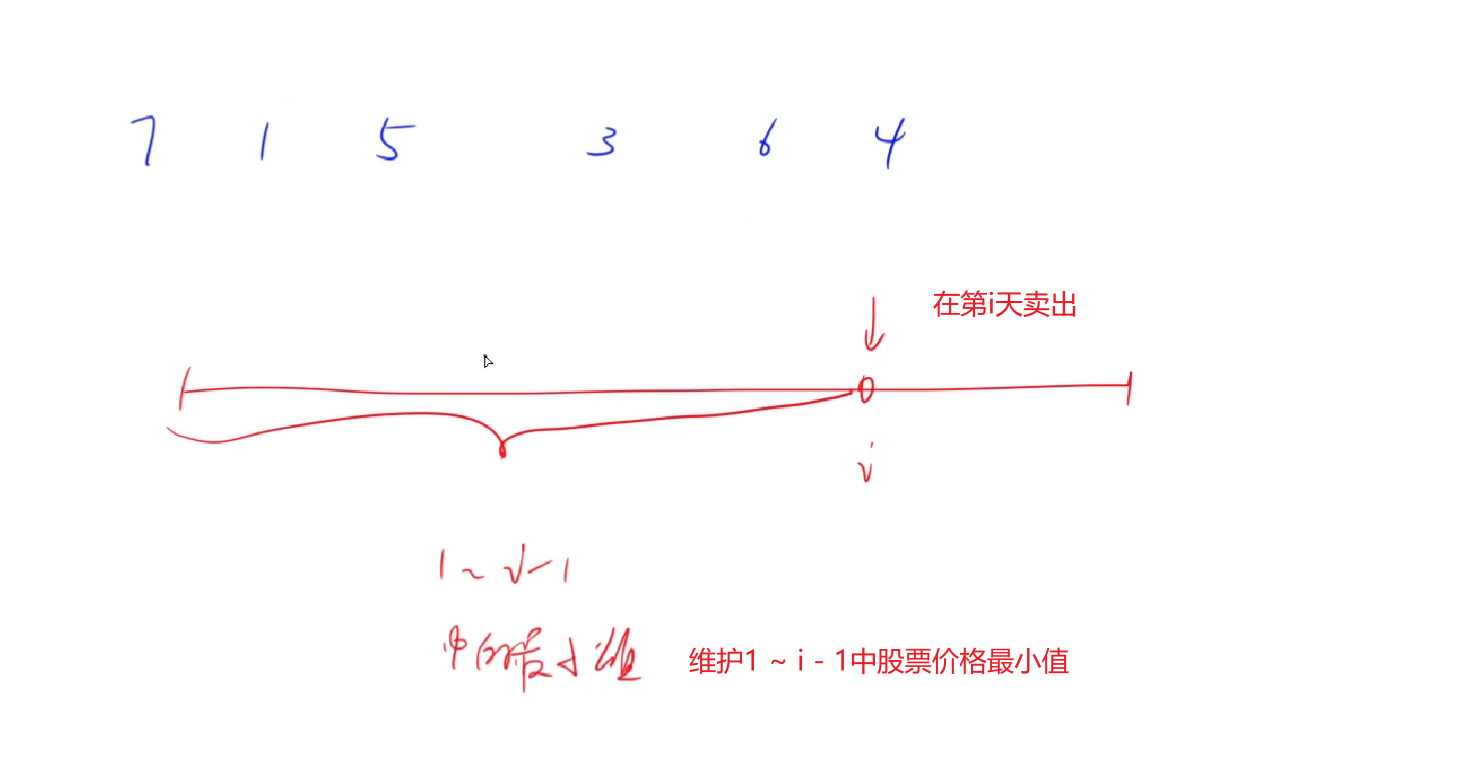 7 1 5 3 6 4
在第i天卖出
i
1 ~ i - 1
中的最小值
维护1 ~ i - 1中股票价格最小值